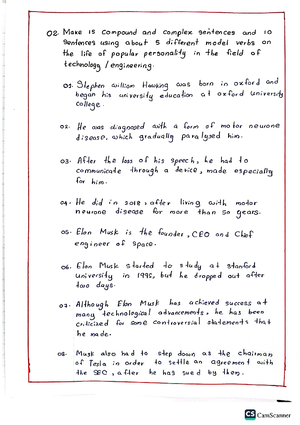 02. Make 15 compound and complex sentences and 10
sentences using about 5 different model verbs on
the life of popular personality in the field of
technology / engineering.
01. Stephen William Hawking was born in oxford and
began his university education at oxford university
college.
02. He was diagnosed with a form of motor neurone
disease, which gradually paralysed him.
03. After the loss of his speech, he had to
communicate through a device, made especially
for him.
04. He did in 2018, after living with motor
neurone disease for more than 50 years.
05. Elon Musk is the founder, CEO and Chef
engineer of space.
06. Elon Musk started to study at Stanford
university in 1995, but he dropped out after
two days.
07. Although Elon Musk has achieved success at
many technological advancements, he has been
criticized for some controversial statements that
he made.
08. Musk also had to step down as the chairman
of Tesla in order to settle an agreement with
the SEC, after he has sued by them.
CS CamScanner